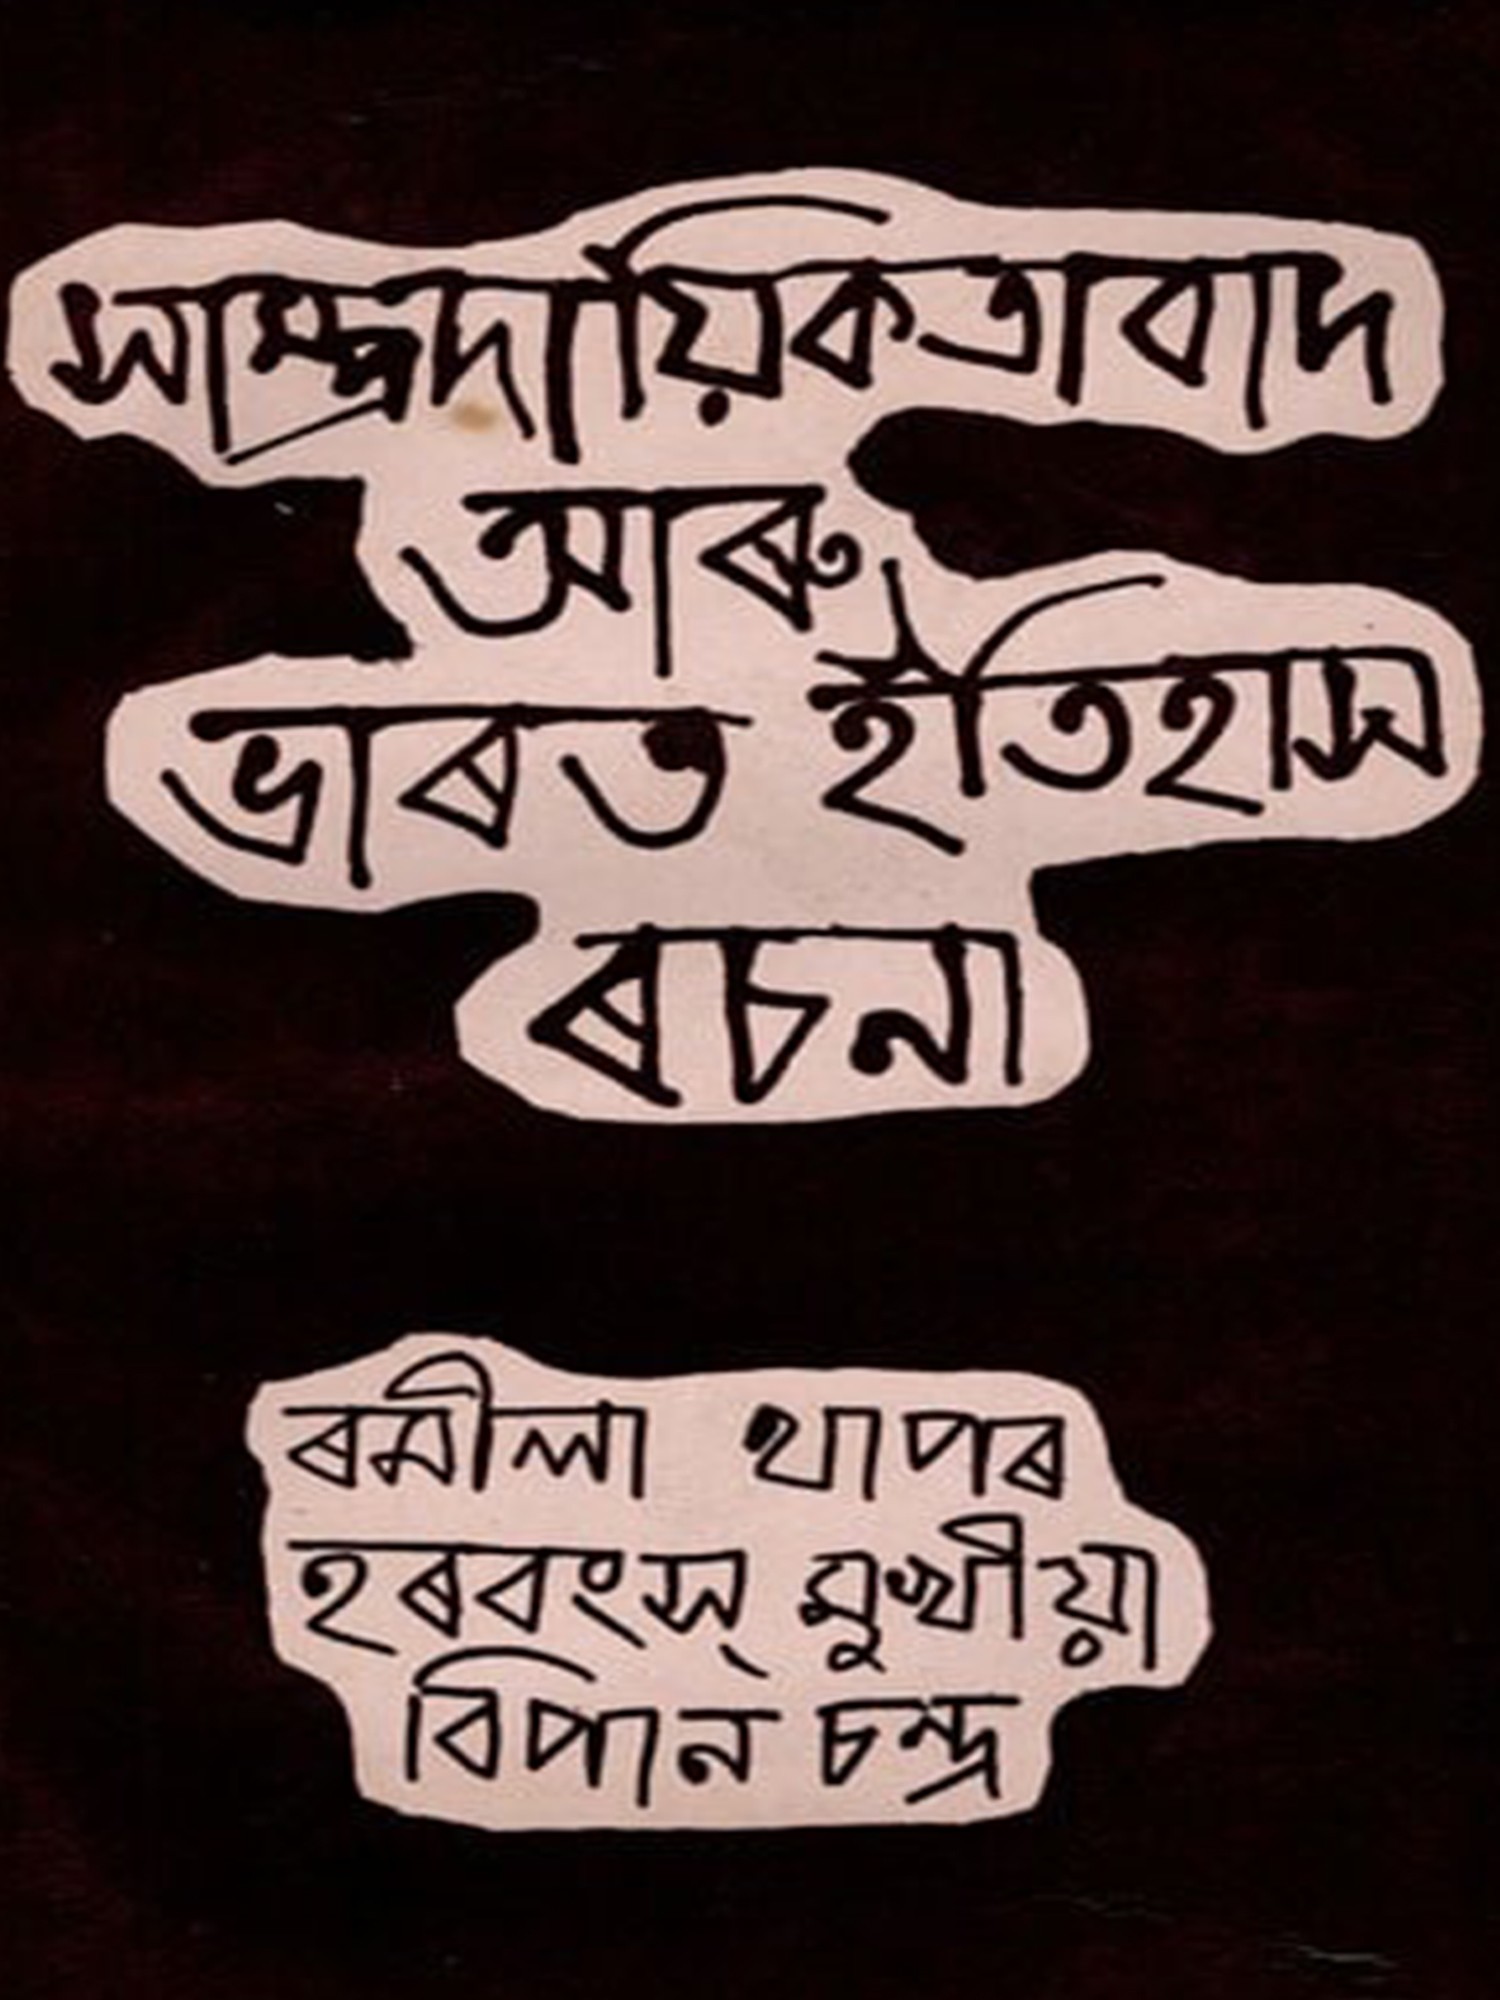 সাম্প্ৰদায়িকতাবাদ
আৰু
ভাৰত ইতিহাস
ৰচনা
ৰমীলা থাপৰ
হৰবংস্ মুখীয়া
বিপান চন্দ্ৰ